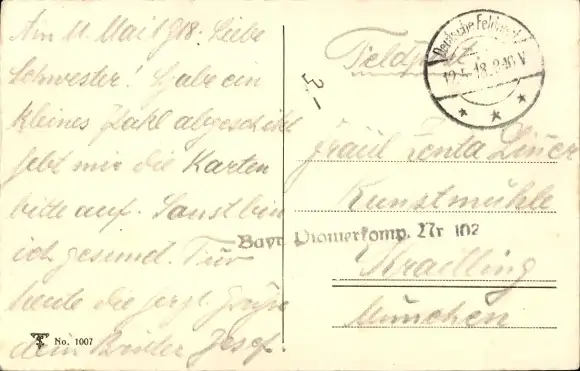 Am 11. Mai 1918. Liebe
Schwester! Habe ein
kleines Pakl abgeschickt
hebt mir die Karten
bitte auf. Sonst bin
ich gesund. Für
heute die herzl. Grüße
dein Bruder Josef.
No. 1007
Feldpost
Deutsche Feldpost
12.5.18.9-10 V
* * *
3-
Fräul Zenta
Kunstmühle
Bayr. Pionierkomp. Nr 102
Krailling
München